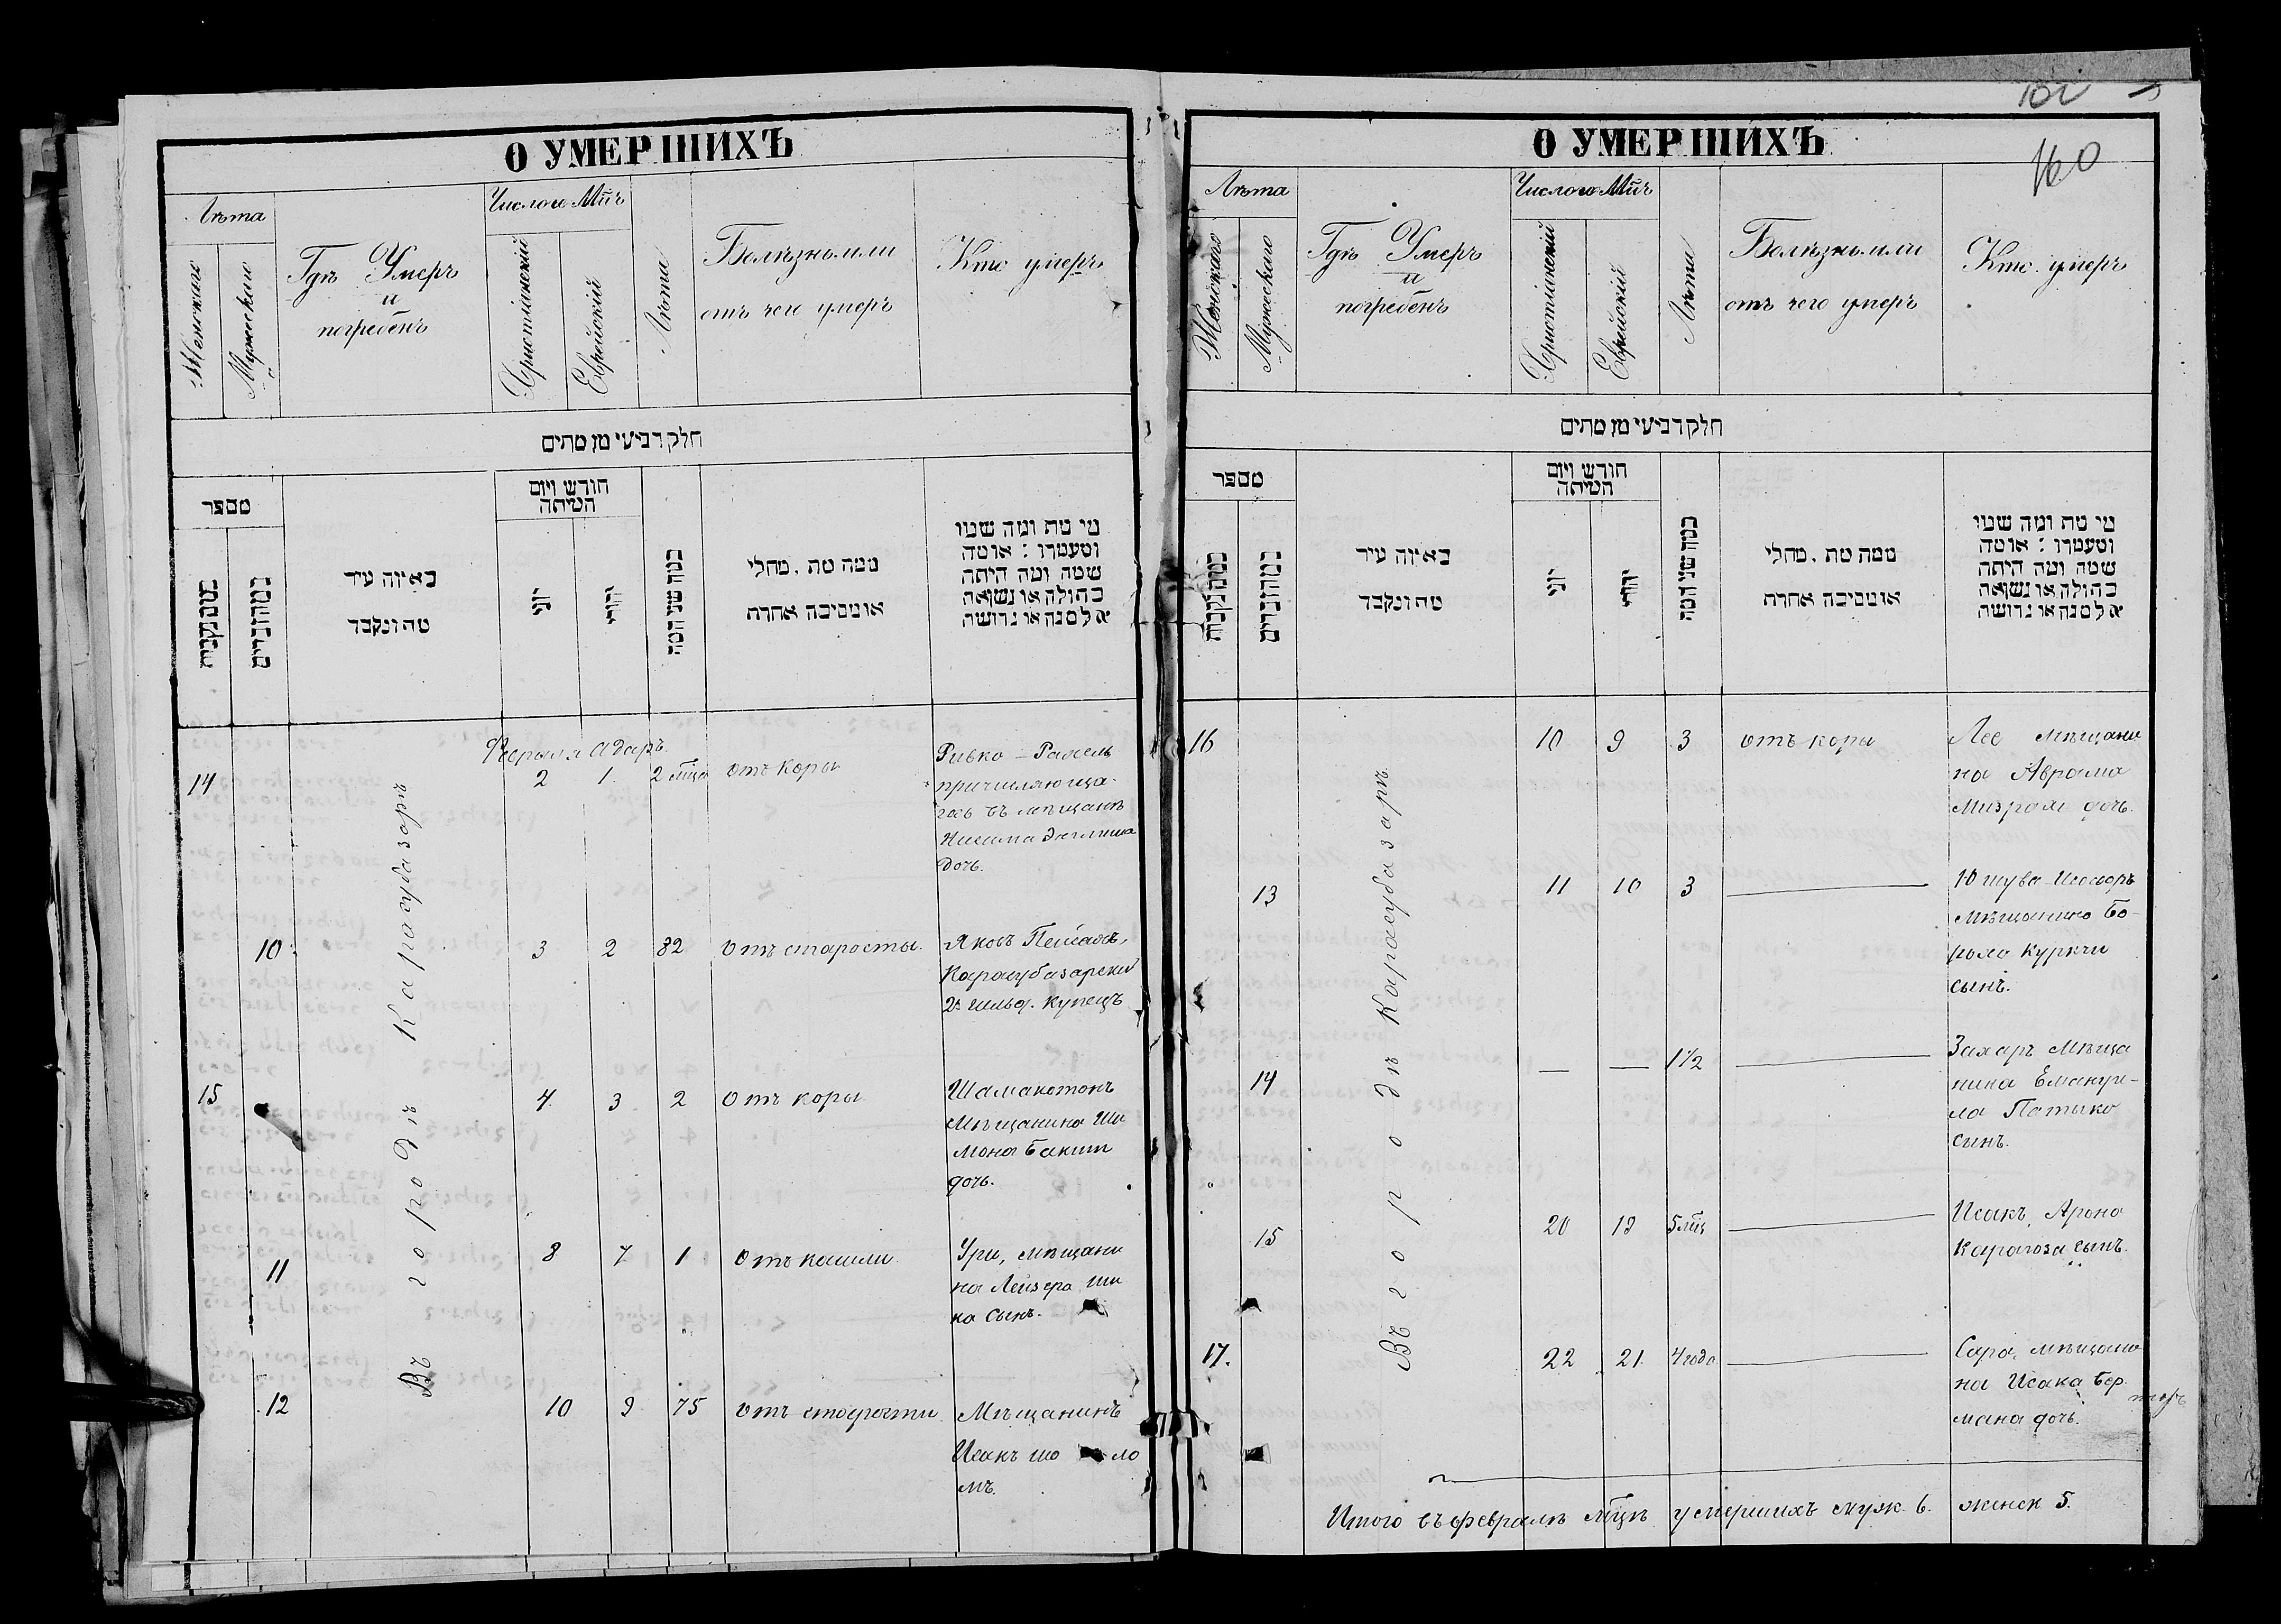 О УМЕРШИХЪ
Лѣта
Женскаго
Мужескаго
Гдѣ Умеръ
и
погребенъ
Число и Мѣ̃ъ
Христіанскій
Еврейскій
Лѣта
Болѣзнь или
отъ чего умеръ
Кто умеръ
חלק רביעי מן מתים
מספר
באיזה עיר
מת ונקבר
חודש ויום
המיתה
יוני
יהודי
כמה שני המת
ממה מת . מחלי
או מסיבה אחרת
מי מת ומה שמו
ומעמדו : או מה
שמה ומה היתה
בתולה או נשואה
אלמנה או גרושה
Въ городѣ Карасубазарѣ
Февраля Адаръ
14
2
1
2 мѣца
отъ коры
Ривка - Рахель
причисляюща-
гось въ мѣщане
Нисима
дочь.
10
3
2
82
Отъ старости.
Яковъ Пейсахъ,
Карасубазарскій
2й гильд. купецъ
15
4
3
2
Отъ коры
Шамакотонъ
Мѣщанина Ши
мона Бакши
дочь.
11
8
7
1
Отъ кашли.
Ури, мѣщани
на Лейзера Ши
ка сынъ.
12
10
9
75
отъ старости.
Мѣщанинъ
Исакъ шо ло
мъ.
О УМЕРШИХЪ
160
Лѣта
Женскаго
Мужескаго
Гдѣ Умеръ
и
погребенъ
Число и Мѣ̃ъ
Христіанскій
Еврейскій
Лѣта
Болѣзнь или
отъ чего умеръ
Кто умеръ
חלק רביעי מן מתים
מספר
באיזה עיר
מת ונקבר
חודש ויום
המיתה
יוני
יהודי
כמה שני המת
ממה מת . מחלי
או מסיבה אחרת
מי מת ומה שמו
ומעמדו : או מה
שמה ומה היתה
בתולה או נשואה
אלמנה או גרושה
Въ городѣ Карасубазарѣ
16
10
9
3
отъ коры
Лее мѣщани
на Аврама
Мизрахи дочь.
13
11
10
3
Юшува-Исохоръ
мѣщанина Бо-
роха Куркчи
сынъ.
14
1 1/2
Захаръ Мѣща
нина Емануи-
ла Патыко
сынъ.
15
20
19
5 мѣц
Исакъ, Арона
Карагоза сынъ.
17.
22
21.
4 года
Сара, мѣщани
на Исака Бер-
мана дочь.
Итого въ февралѣ мѣцѣ умершихъ муж. 6. женск 5.